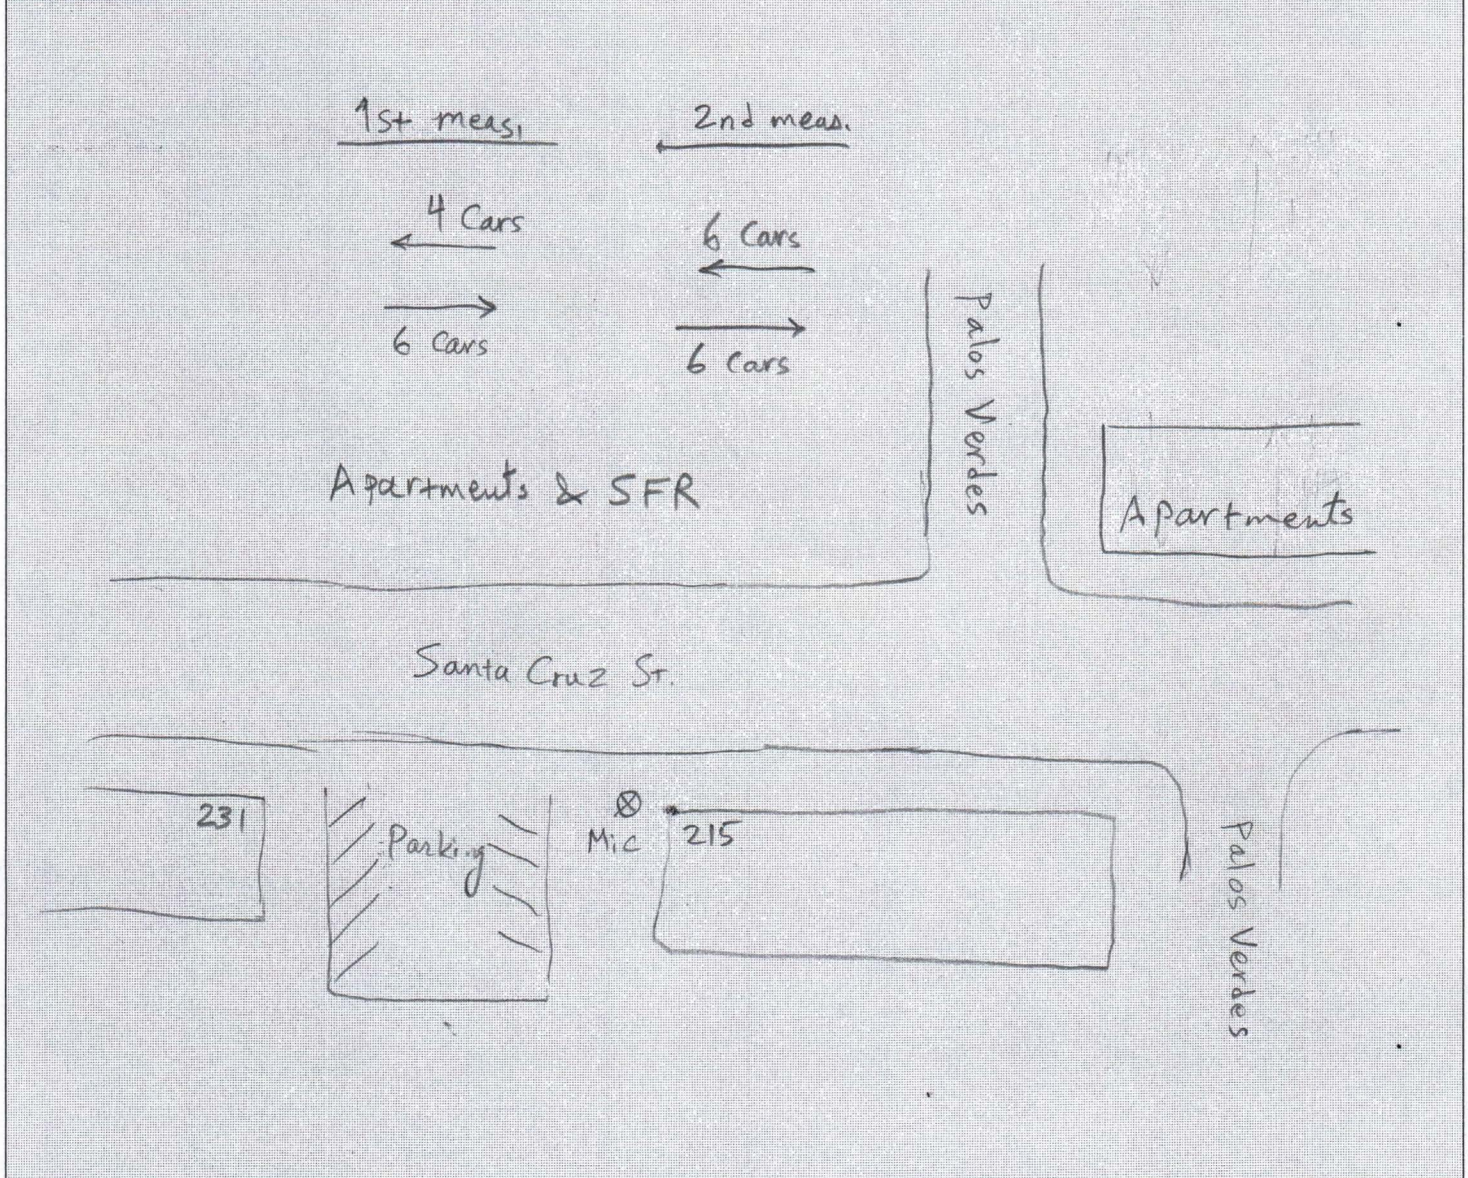 1st meas.
2nd meas.
4 Cars
6 Cars
6 Cars
6 Cars
Palos Verdes
Apartments & SFR
Apartments
Santa Cruz St.
231
Parking
Mic
215
Palos Verdes